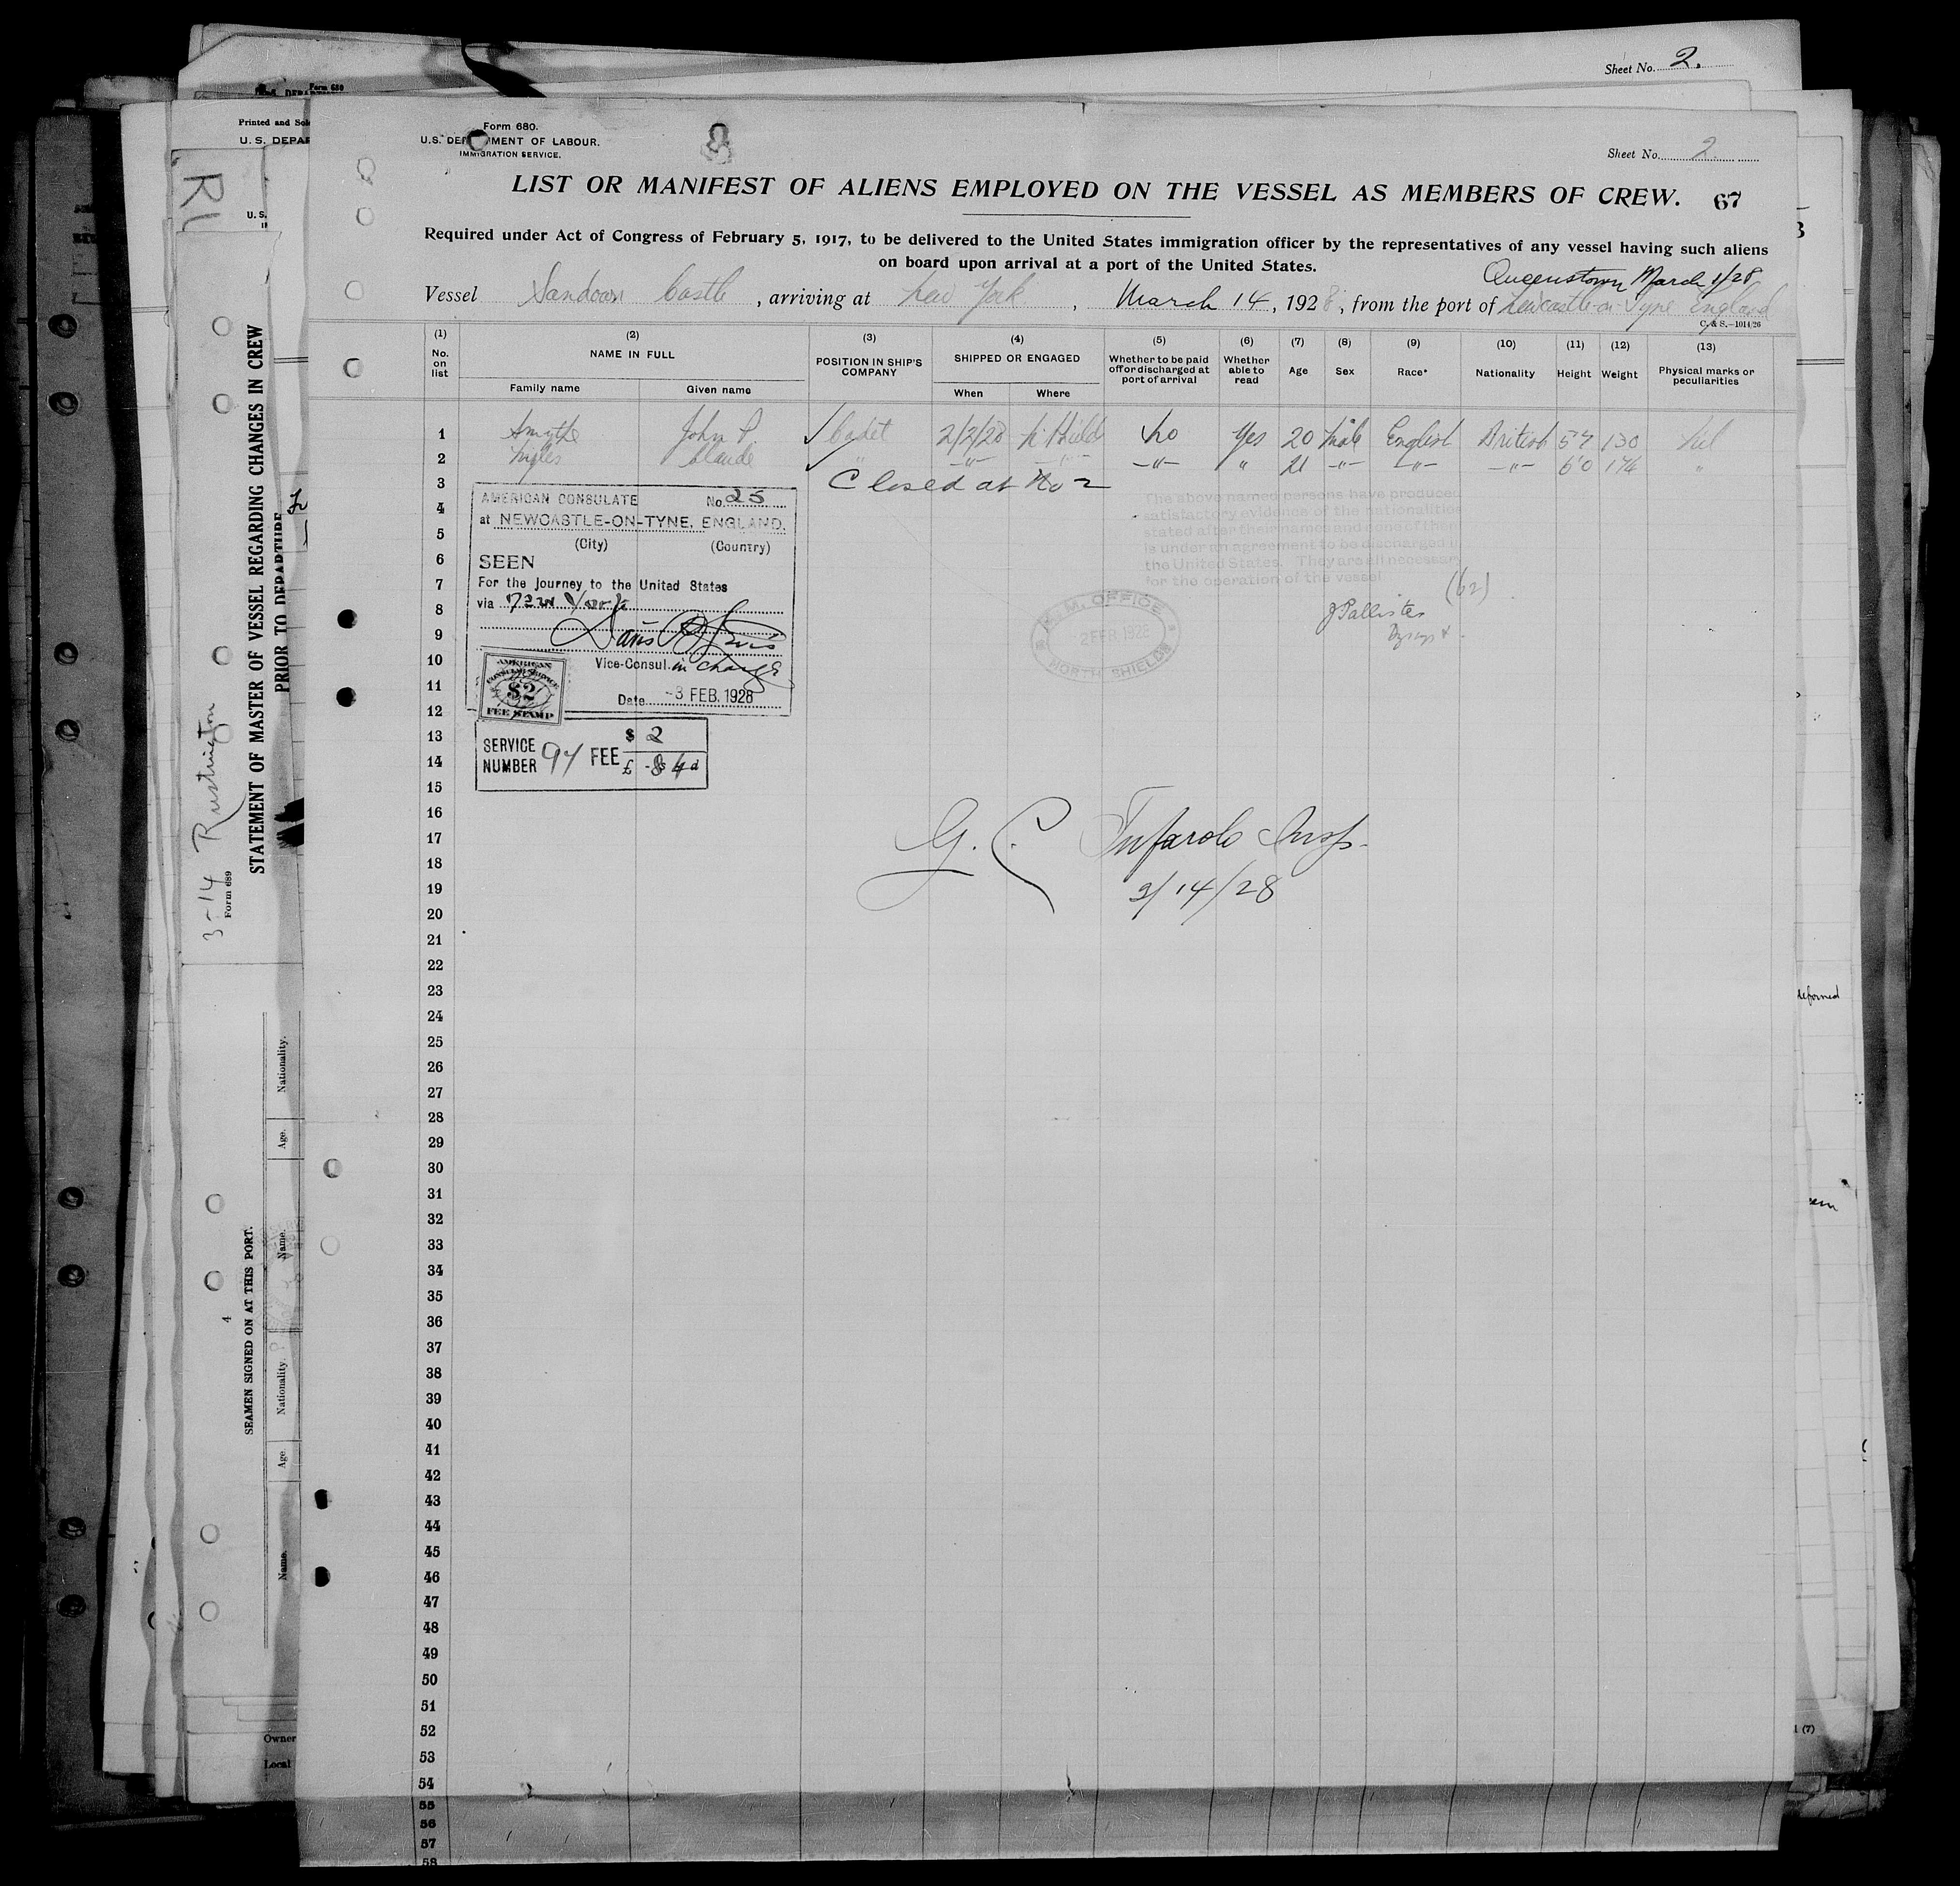 Sheet No. 2.
Form 680
Printed and Sol
U. S. DEPAR
Form 680.
U.S. DEP MENT OF LABOUR.
IMMIGRATION SERVICE.
8
Sheet No. 2.
LIST OR MANIFEST OF ALIENS EMPLOYED ON THE VESSEL AS MEMBERS OF CREW. 67
Required under Act of Congress of February 5, 1917, to be delivered to the United States immigration officer by the representatives of any vessel having such aliens
on board upon arrival at a port of the United States.
Queenstown March 1/28
Vessel Sandown Castle, arriving at New York, March 14, 1928, from the port of Newcastle-on-Tyne England
C. & S.—1014/26
(1) (2) (3) (4) (5) (6) (7) (8) (9) (10) (11) (12) (13)
No. on list
NAME IN FULL
Family name Given name
POSITION IN SHIP'S COMPANY
SHIPPED OR ENGAGED
When Where
Whether to be paid off or discharged at port of arrival
Whether able to read
Age
Sex
Race*
Nationality
Height
Weight
Physical marks or peculiarities
1 Smythe John P. ✓ Cadet 2/2/28 N. Shields No Yes 20 Male English British 5'7 130 Nil
2 Claude ✓ " -"- -"- -"- " 21 -"- -"- -"- 6'0 174 "
3 Closed at No 2
4
5
6
7
8
9
10
11
12
13
14
15
16
17
18
19
20
21
22
23
24
25
26
27
28
29
30
31
32
33
34
35
36
37
38
39
40
41
42
43
44
45
46
47
48
49
50
51
52
53
54
55
56
57
58
AMERICAN CONSULATE No. 25
at NEWCASTLE-ON-TYNE, ENGLAND.
(City) (Country)
SEEN
For the journey to the United States
via New York
Vice-Consul. in charge
Date -3 FEB. 1928
AMERICAN
CONSULAR SERVICE
$2
FEE STAMP
SERVICE NUMBER 94 FEE $ 2
£ -8s 4d
The above named persons have produced
satisfactory evidence of the nationalities
stated after their names and none of them
is under an agreement to be discharged in
the United States. They are all necessary
for the operation of the vessel
(62)
J Pallister
M.M. OFFICE
2 FEB. 1928
NORTH SHIELDS
G. C. Tufarolo Insp.
3/14/28
3-14 Rustington
Form 689
STATEMENT OF MASTER OF VESSEL REGARDING CHANGES IN CREW
PRIOR TO DEPARTURE
4
SEAMEN SIGNED ON AT THIS PORT.
Name. Age. Nationality. Name. Age. Nationality.
Owner
Local
deformed